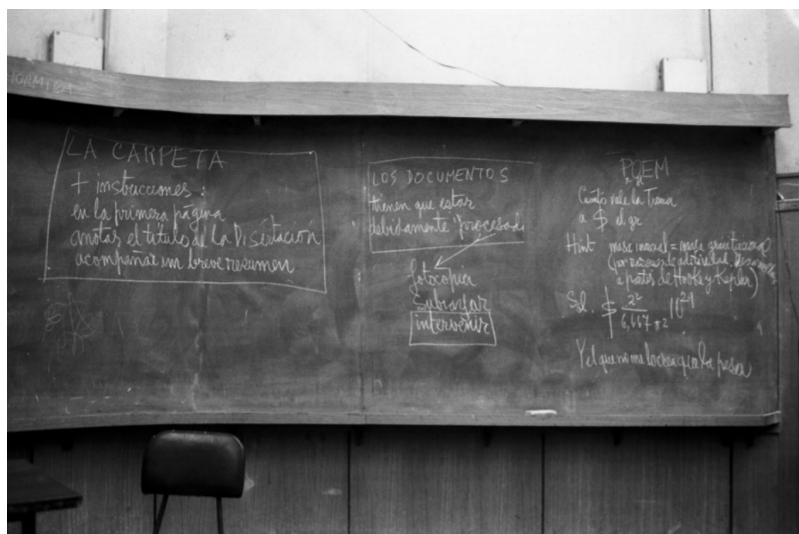 LA CARPETA
+ instrucciones :
en la primera página
anotar el título de la Disertación
acompañar un breve resumen
LOS DOCUMENTOS
tienen que estar
debidamente "procesad
fotocopiar
Subrayar
intervenir
POEM
Cuánto vale la Tierra
a $ el gr
Hint masa inercial = masa gravitacional
a partes de Hooke y Kepler)
Sol. $ 2² 10²¹
6,667 π²
Y el que no me lo crea que la pese